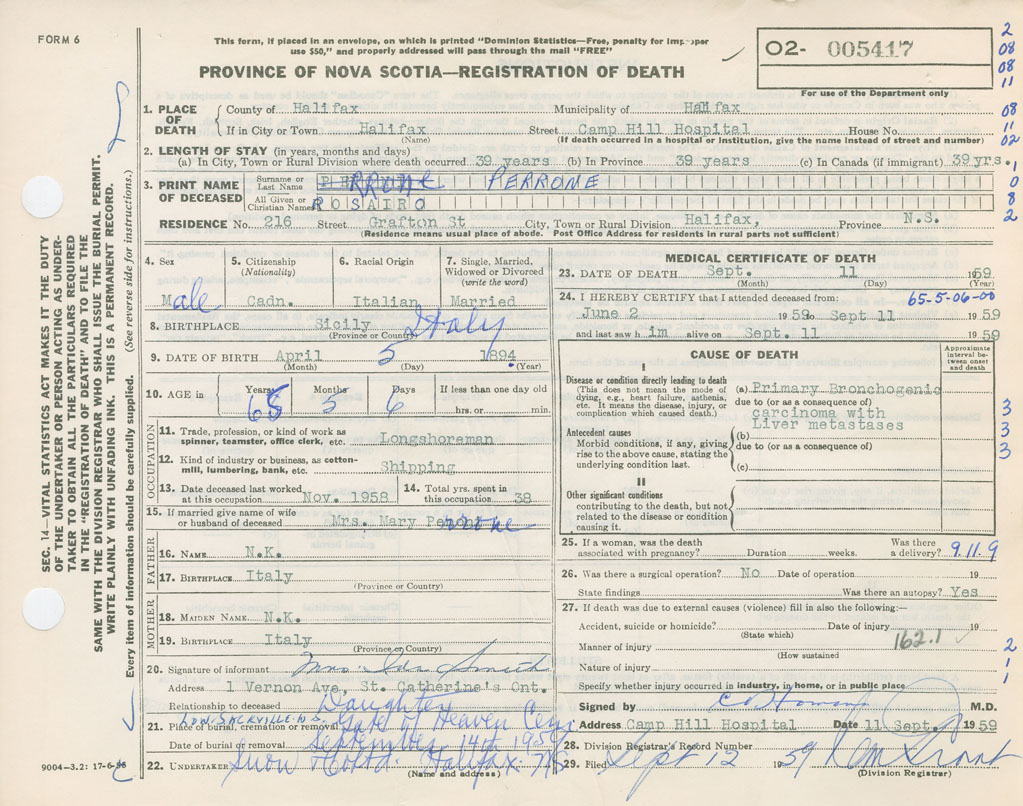 FORM 6
This form, if placed in an envelope, on which is printed "Dominion Statistics—Free, penalty for improper
use $50," and properly addressed will pass through the mail "FREE"
PROVINCE OF NOVA SCOTIA—REGISTRATION OF DEATH
02- 005417
For use of the Department only
2
08
08
11
08
11
02
1
0
8
2
1. PLACE OF DEATH
County of Halifax Municipality of Halifax
If in City or Town Halifax Street Camp Hill Hospital House No.
(Name) (If death occurred in a hospital or institution, give the name instead of street and number)
2. LENGTH OF STAY (in years, months and days)
(a) In City, Town or Rural Division where death occurred 39 years (b) In Province 39 years (c) In Canada (if immigrant) 39 yrs.
3. PRINT NAME OF DECEASED
Surname or Last Name PERRONE PERRONE
All Given or Christian Names ROSAIRO
RESIDENCE No. 216 Street Grafton St City, Town or Rural Division Halifax, Province N.S.
(Residence means usual place of abode. Post Office Address for residents in rural parts not sufficient)
4. Sex
Male
5. Citizenship
(Nationality)
Cadn.
6. Racial Origin
Italian
7. Single, Married, Widowed or Divorced
(write the word)
Married
8. BIRTHPLACE Sicily Italy
(Province or Country)
9. DATE OF BIRTH April 5 1894
(Month) (Day) (Year)
10. AGE in
Years 65
Months 5
Days 6
If less than one day old
hrs. or min.
OCCUPATION
11. Trade, profession, or kind of work as
spinner, teamster, office clerk, etc. Longshoreman
12. Kind of industry or business, as cotton-
mill, lumbering, bank, etc. Shipping
13. Date deceased last worked
at this occupation Nov. 1958
14. Total yrs. spent in
this occupation 38
15. If married give name of wife
or husband of deceased Mrs. Mary Perrone
FATHER
16. NAME N.K.
17. BIRTHPLACE Italy
(Province or Country)
MOTHER
18. MAIDEN NAME N.K.
19. BIRTHPLACE Italy
(Province or Country)
20. Signature of informant Mrs. Ida Smith
Address 1 Vernon Ave, St. Catherine's Ont.
Relationship to deceased Daughter
21. Place of burial, cremation or removal LOW. SACKVILLE N.S. Gate of Heaven Cem
Date of burial or removal September 14th 1959
22. UNDERTAKER Snow & Co Ltd. Halifax. NS
(Name and address)
MEDICAL CERTIFICATE OF DEATH
23. DATE OF DEATH Sept. 11 1959
(Month) (Day) (Year)
24. I HEREBY CERTIFY that I attended deceased from: 65-5-06-00
June 2 1959 to Sept 11 1959
and last saw h im alive on Sept. 11 1959
CAUSE OF DEATH
Approximate interval between onset and death
I
Disease or condition directly leading to death
(This does not mean the mode of
dying, e.g., heart failure, asthenia,
etc. It means the disease, injury, or
complication which caused death.)
(a) Primary Bronchogenic
due to (or as a consequence of)
carcinoma with
Liver metastases
Antecedent causes
Morbid conditions, if any, giving
rise to the above cause, stating the
underlying condition last.
(b)
due to (or as a consequence of)
(c)
3
3
3
II
Other significant conditions
contributing to the death, but not
related to the disease or condition
causing it.
25. If a woman, was the death
associated with pregnancy? Duration weeks. Was there a delivery? 9.11.9
26. Was there a surgical operation? No Date of operation 19
State findings Was there an autopsy? Yes
27. If death was due to external causes (violence) fill in also the following:—
Accident, suicide or homicide? Date of injury 19
(State which)
162.1
Manner of injury
(How sustained
Nature of injury
Specify whether injury occurred in industry, in home, or in public place
2
1
1
Signed by M.D.
Address Camp Hill Hospital Date 11 Sept. 1959
28. Division Registrar's Record Number
29. Filed Sept 12 1959
(Division Registrar)
SEC. 14—VITAL STATISTICS ACT MAKES IT THE DUTY
OF THE UNDERTAKER OR PERSON ACTING AS UNDER-
TAKER TO OBTAIN ALL THE PARTICULARS REQUIRED
IN THE "REGISTRATION OF DEATH" AND TO FILE THE
SAME WITH THE DIVISION REGISTRAR WHO SHALL ISSUE THE BURIAL PERMIT.
WRITE PLAINLY WITH UNFADING INK. THIS IS A PERMANENT RECORD.
Every item of information should be carefully supplied. (See reverse side for instructions.)
9004-3.2: 17-6-58